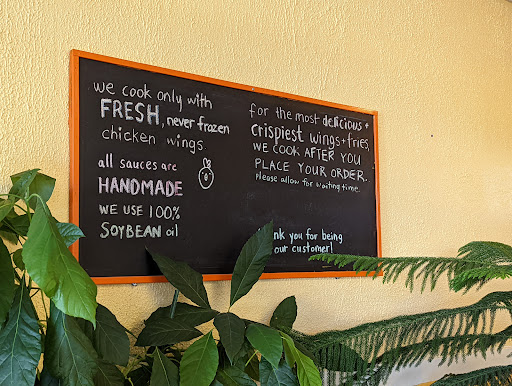 we cook only with
FRESH, never frozen
chicken wings
all sauces are
HANDMADE
WE USE 100%
SOYBEAN oil
for the most delicious +
crispiest wings + fries,
WE COOK AFTER YOU
PLACE YOUR ORDER.
Please allow for waiting time.
you for being
our customer!